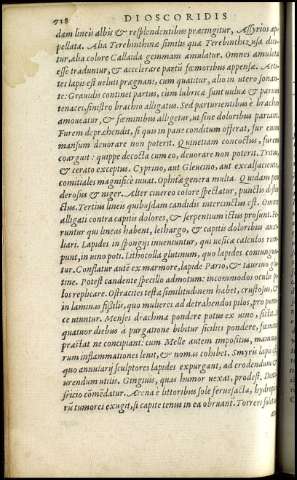 718 DIOSCORIDIS
dam lineis albis & resplendentibus præcingitur, Assyrios ap
pellata. Alia Terebinthina similis quæ Terebinthizusa dici
tur, alia colore Callaida gemmam æmulatur. Omnes amuleta
esse traduntur, & accelerare partû fœmoribus appensæ. Aëti
tes lapis est veluti prægnans, cum quatitur, alio in utero sonan
te: Gravidis continet partus, cùm lubrica sunt vulvæ & parum
tenaces, sinistro brachio alligatus. Sed parturientibus è brachio
amoveatur, & fœminibus alligetur, ut sine doloribus pariant.
Furem deprehendit, si quis in pane conditum offerat, fur enim
mansum devorare non poterit. Quinetiam concoctus, furem
coarguit: quippe decocta cum eo, devorare non poterit. Tritus
& cerato exceptus, Cyprino, aut Gleucino, aut excalfactorio
comitiales magnificè iuvat. Ophitæ genera multa. Quidam pon
derosus & niger. Alter cinereo colore spectatur, punctis distin
ctus. Tertius lineis quibusdam candidis intercinctus est. Omnes
alligati contra capitis dolores, & serpentium ictus prosunt. Fe
runtur qui lineas habent, lethargo, & capitis doloribus auxi
liari. Lapides in spongijs inveniuntur, qui vesicæ calculos rum
punt, in vino poti. Lithocolla glutinum, quo lapides coniungun
tur. Conflatur autē ex marmore, lapide Pario, & taurino glu
tine. Potest candente specillo admotum: incommodos oculis pi
los replicare. Ostracites testæ similitudinem habet, crustosus, &
in laminas fissilis, quo mulieres ad detrahendos pilos, pro pumi
ce utuntur. Menses drachmæ pondere potus ex vino, sistit. Si
quatuor diebus à purgatione bibitur sichlis pondere, fœminis
præstat ne concipiant: cum Melle autem impositus, mamma
rum inflammationes lenit, & nomas cohibet. Smyris lapis est
quo annularij sculptores lapides expurgant, ad erodendum &
urendum utilis. Gingivis, quas humor vexat, prodest. Dentifricio
commodatur. Arena è littoribus sole fervefacta, hydropi
cû tumores exugit, si capite tenus in ea obruant. Torretur